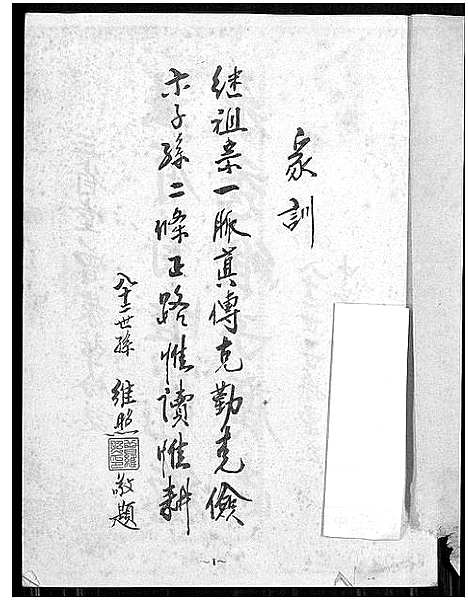 家訓
继祖宗一脈真傳克勤克儉
示子孫二條正路惟讀惟耕
八十二世孫 維照 敬題
~1~